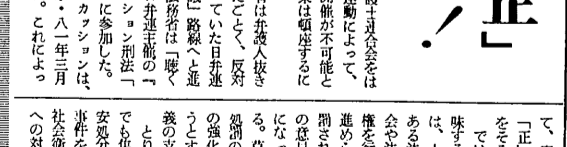 正」
！
護士連合会をは
運動によって、
開催が不可能と
案は頓座するに
省は弁護人抜き
ごとく、反対
ていた日弁連
」路線へと進
法務省は「聴く
弁連主催の『
ション刑法「
に参加した。
カッションは、
・八一年三月
。これによっ
て、
「正
をそ
で
味す
は、
ある
会や
進め
権を行
罰され
の意見
になっ
る。
処罰の
の強化
うとす
義の支
とり
でも
安処分
事件を
社会衛
への対